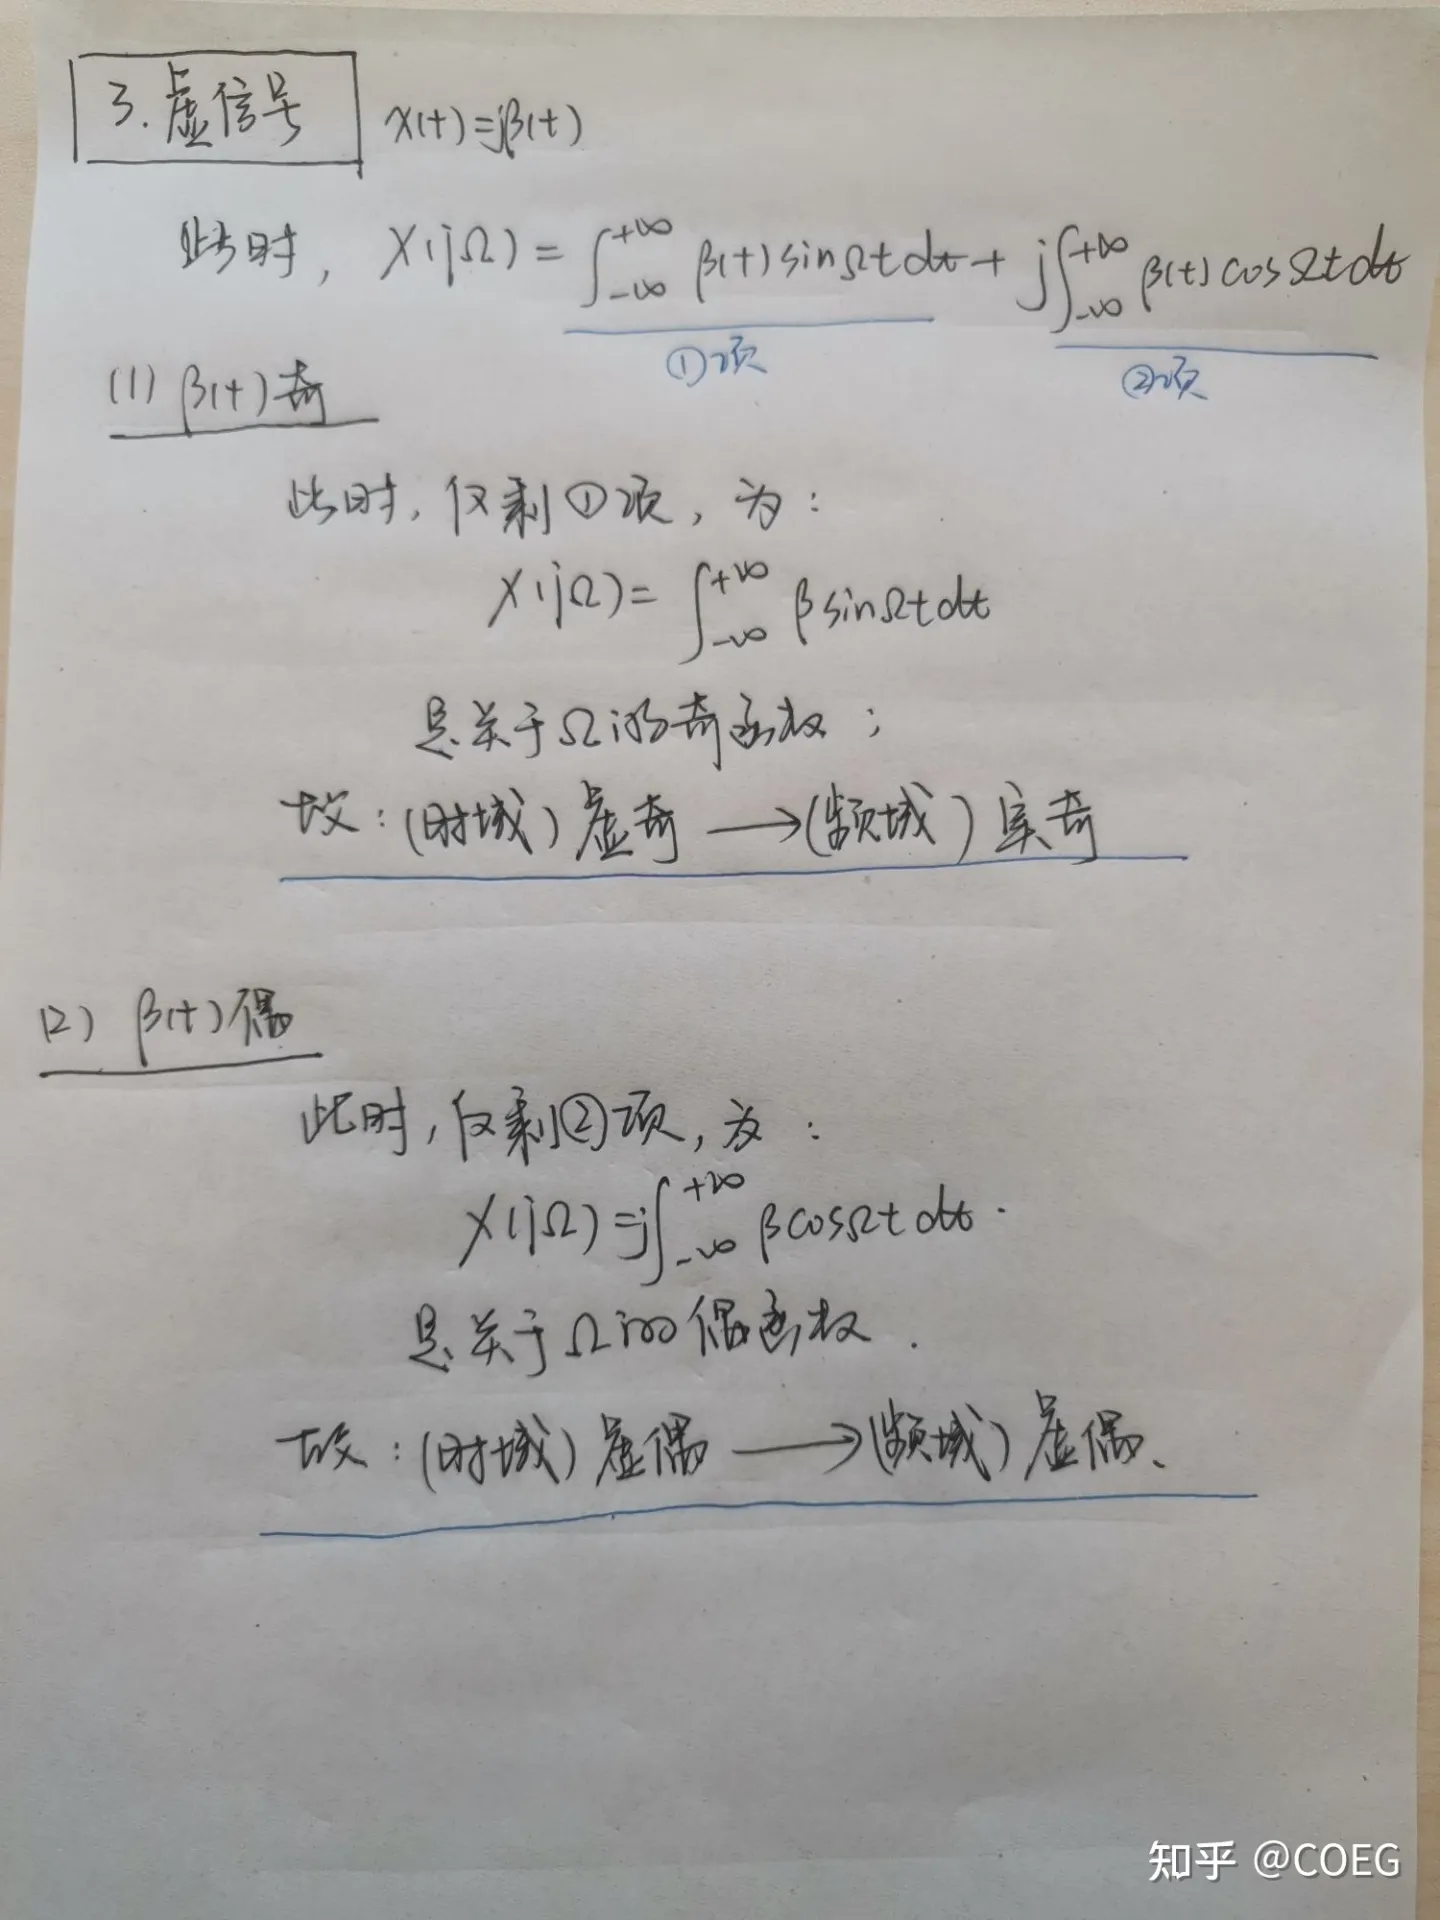 3.虚信号 x(t)=jβ(t)
此时, X(jΩ)=∫_{-∞}^{+∞} β(t)sinΩtdt+j∫_{-∞}^{+∞} β(t)cosΩtdt
①项 ②项
(1) β(t)奇
此时,仅剩①项,为:
X(jΩ)=∫_{-∞}^{+∞} βsinΩtdt
是关于Ω的奇函数;
故:(时域)虚奇→(频域)实奇
(2) β(t)偶
此时,仅剩②项,为:
X(jΩ)=j∫_{-∞}^{+∞} βcosΩtdt.
是关于Ω的偶函数.
故:(时域)虚偶→(频域)虚偶、
知乎 @COEG